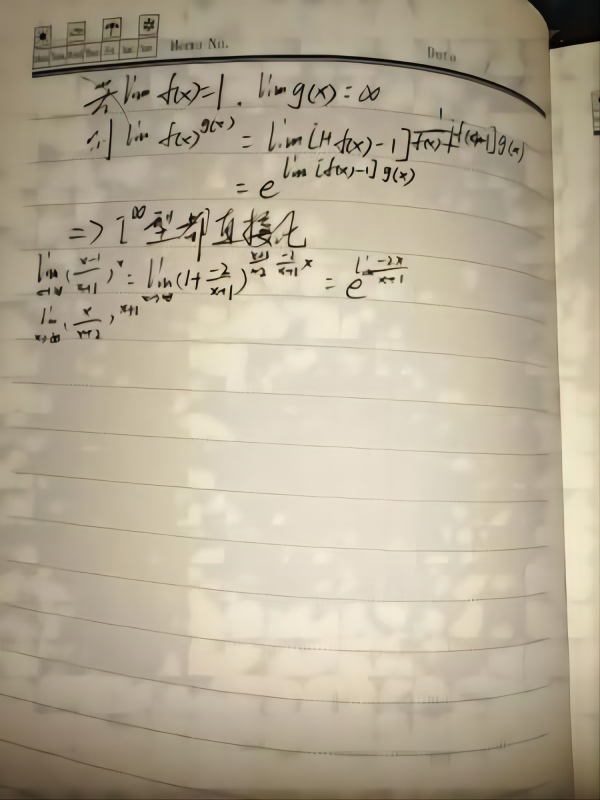 Memo No. Date
若 lim f(x)=1. lim g(x)=∞
则 lim f(x)^{g(x)} = lim [1+f(x)-1]^{\frac{1}{f(x)-1}[f(x)-1]g(x)}
= e^{lim [f(x)-1] g(x)}
=> 1^∞型都直接化
lim_{x→∞} (\frac{x-1}{x+1})^x = lim_{x→∞} (1+\frac{-2}{x+1})^{\frac{x+1}{-2} \frac{-2}{x+1} x} = e^{lim \frac{-2x}{x+1}}
lim_{x→∞} (\frac{x}{x+2})^{x+1}